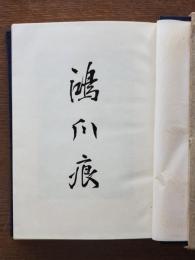 鴻爪痕